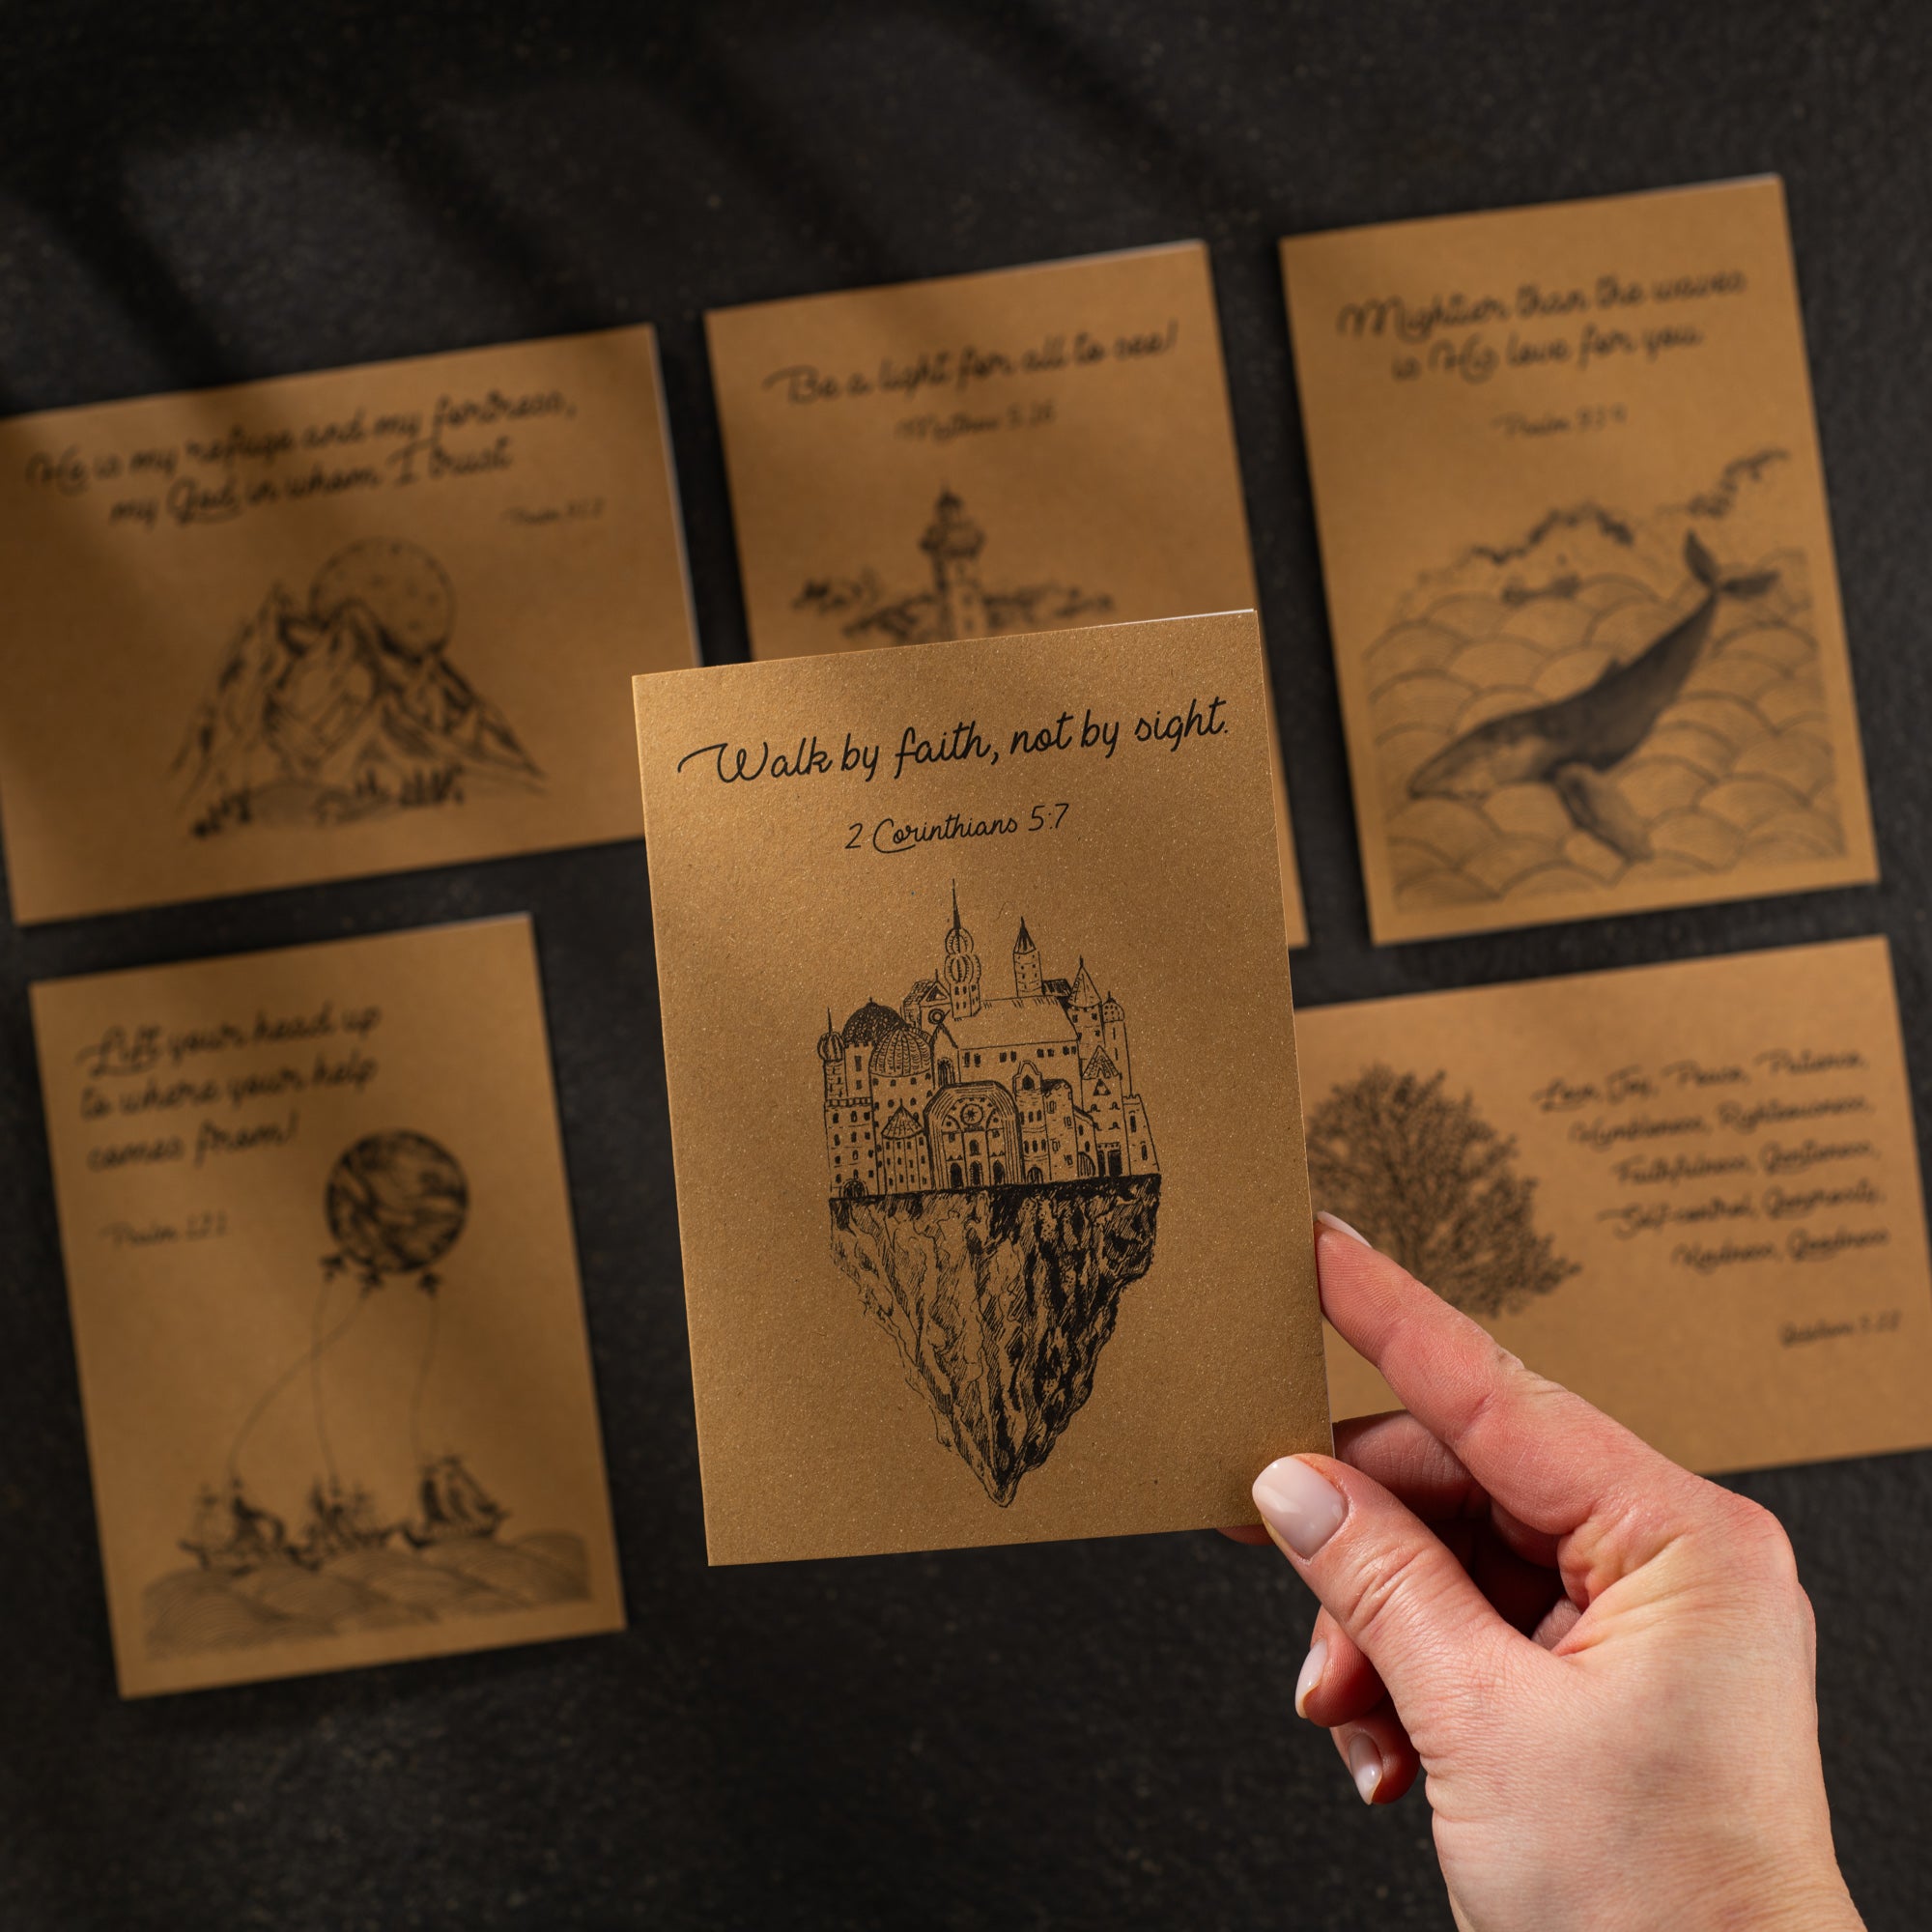 He is my refuge and my fortress,
my God, in whom I trust
Psalm 91:2
Be a light for all to see!
Matthew 5:16
Mightier than the waves
is His love for you
Psalm 93:4
Walk by faith, not by sight.
2 Corinthians 5:7
Lift your head up
to where your help
comes from!
Psalm
Love, Joy, Peace, Patience,
Humbleness, Righteousness,
Faithfulness, Gentleness,
Self-control, Generosity,
Kindness, Goodness
Galatians 5:22